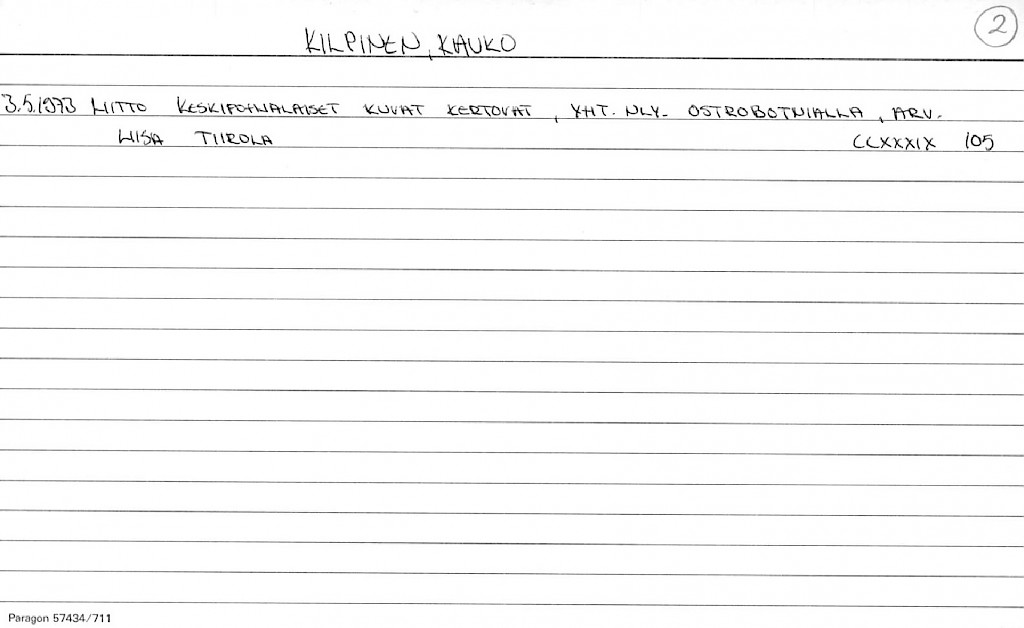 KILPINEN, KAUKO
2
3.5.1973 LIITTO KESKIPOHJALAISET KUVAT KERTOVAT, YHT. NLY. OSTROBOTNIALLA, ARV.
LIISA TIIROLA CCXXXIX 105
Paragon 57434/711